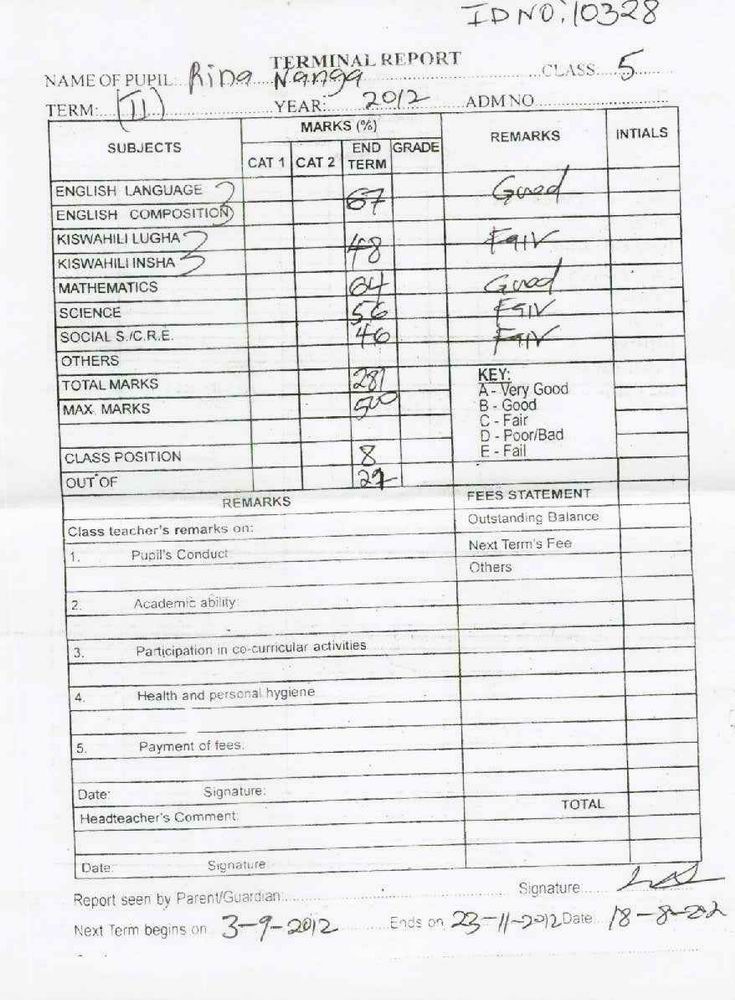 ID NO: 10328
TERMINAL REPORT
NAME OF PUPIL: Rina Nanga CLASS 5
TERM: (II) YEAR: 2012 ADM NO
SUBJECTS MARKS (%) REMARKS INTIALS
CAT 1 CAT 2 END TERM GRADE
ENGLISH LANGUAGE
ENGLISH COMPOSITION 67 Good
KISWAHILI LUGHA
KISWAHILI INSHA 48 Fair
MATHEMATICS 64 Good
SCIENCE 56 Fair
SOCIAL S./C.R.E. 46 Fair
OTHERS
TOTAL MARKS 281
MAX MARKS 500
KEY:
A - Very Good
B - Good
C - Fair
D - Poor/Bad
E - Fail
CLASS POSITION 8
OUT OF 27
REMARKS FEES STATEMENT
Class teacher's remarks on: Outstanding Balance
1. Pupil's Conduct Next Term's Fee
Others
2. Academic ability
3. Participation in co-curricular activities
4. Health and personal hygiene
5. Payment of fees.
Date: Signature:
Headteacher's Comment: TOTAL
Date: Signature
Report seen by Parent/Guardian: Signature
Next Term begins on 3-9-2012 Ends on 23-11-2012 Date: 18-8-202